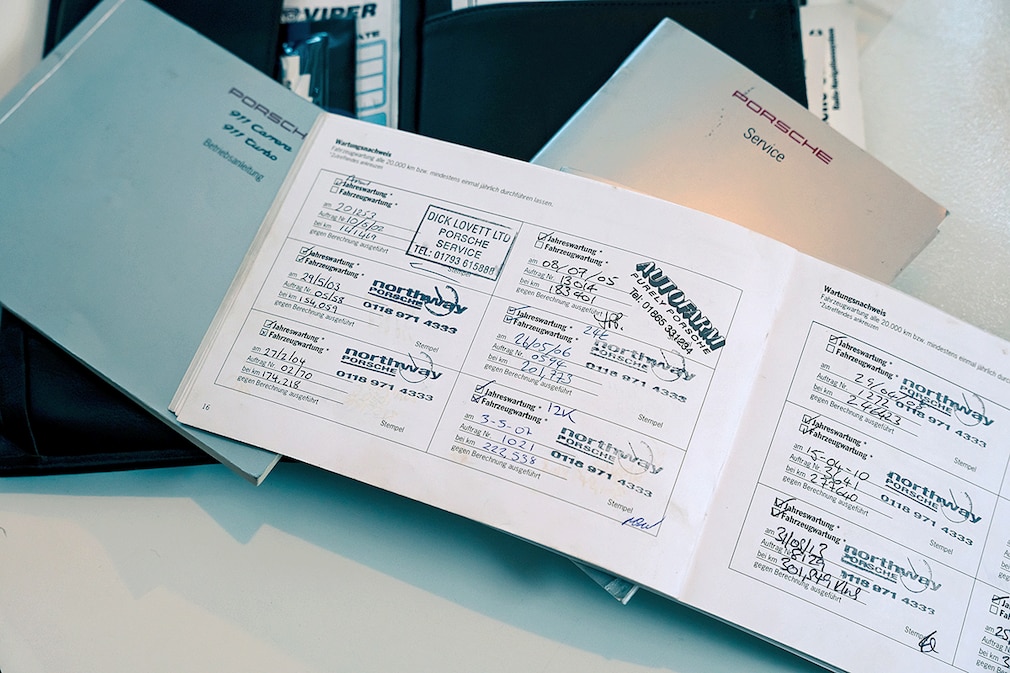 VIPER
PORSCHE
911 Carrera
911 Turbo
Betriebsanleitung
PORSCHE
Service
Wartungsnachweis
Fahrzeugwartung alle 20.000 km bzw. mindestens einmal jährlich durchführen lassen.
*Zutreffendes ankreuzen
Jahreswartung *
Fahrzeugwartung *
am 201253
Auftrag Nr. 10/6/02
bei km 141,469
gegen Berechnung ausgeführt
DICK LOVETT LTD
PORSCHE
SERVICE
TEL: 01793 615888
Jahreswartung *
Fahrzeugwartung *
am 29/5/03
Auftrag Nr. 05/58
bei km 154,059
gegen Berechnung ausgeführt
northway
PORSCHE
0118 971 4333
Stempel
Jahreswartung *
Fahrzeugwartung *
am 27/2/04
Auftrag Nr. 02/70
bei km 174,218
gegen Berechnung ausgeführt
northway
PORSCHE
0118 971 4333
Stempel
16
Jahreswartung *
Fahrzeugwartung *
am 08/07/05
Auftrag Nr. 13014
bei km 183901
gegen Berechnung ausgeführt
AUTOFARM
PURELY PORSCHE
Tel: 01865 331234
Jahreswartung *
Fahrzeugwartung *
24K
am 26/05/06
Auftrag Nr. 0594
bei km 201,773
gegen Berechnung ausgeführt
northway
PORSCHE
0118 971 4333
Stempel
Jahreswartung *
Fahrzeugwartung *
12K
am 3-5-07
Auftrag Nr. 1021
bei km 222,558
gegen Berechnung ausgeführt
northway
PORSCHE
0118 971 4333
Stempel
Wartungsnachweis
Fahrzeugwartung alle 20.000 km bzw. mindestens einmal jährlich
*Zutreffendes ankreuzen
Jahreswartung *
Fahrzeugwartung *
am
Auftrag Nr.
bei km
gegen Berechnung ausgeführt
northway
PORSCHE
0118 971 4333
Stempel
Jahreswartung *
Fahrzeugwartung *
am 15-04-10
Auftrag Nr. 3641
bei km 277640
gegen Berechnung ausgeführt
northway
PORSCHE
0118 971 4333
Stempel
Jahreswartung *
Fahrzeugwartung *
am 31/08/13
Auftrag Nr. 8129
bei km
gegen Berechnung ausgeführt
northway
PORSCHE
0118 971 4333
Stempel
am 25
Auftrag
bei km
gegen